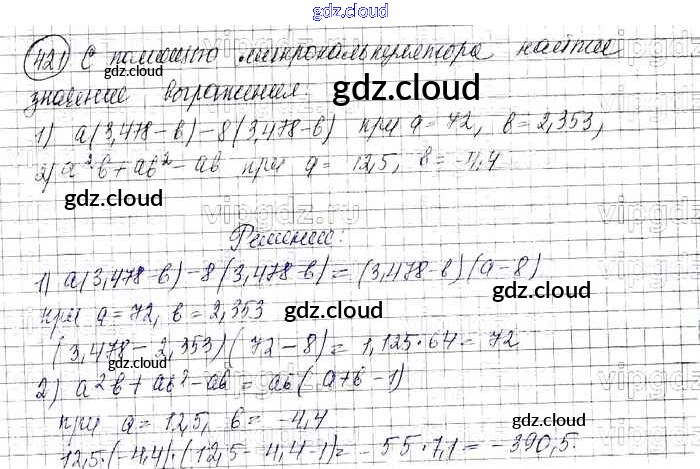 gdz.cloud
421 С помощью микрокалькулятора найдите
gdz.cloud
значение выражения:
gdz.cloud
1) a(3,478-b)-8(3,478-b) при a=72, b=2,353,
2) a²b+ab²-ab при a=12,5, b=-4,4
gdz.cloud
vipgdz.ru
Решение:
1) a(3,478-b)-8(3,478-b)=(3,478-b)(a-8)
при a=72, b=2,353
gdz.cloud
(3,478-2,353)(72-8)=1,125·64=72
gdz.cloud
2) a²b+ab²-ab=ab(a+b-1)
при a=12,5, b=-4,4
gdz.cloud
12,5·(-4,4)·(12,5-4,4-1)=-55·7,1=-390,5.
gdz.cloud